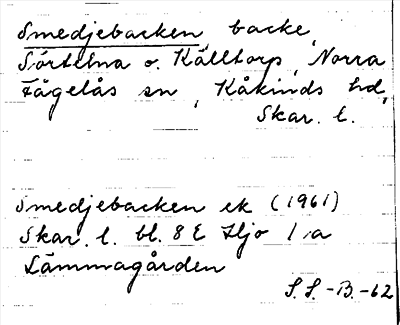 Smedjebacken backe,
Sörtelna o. Källtorp, Norra
Fågelås sn, Kåkinds hd,
Skar. l.
Smedjebacken ek (1961)
Skar. l. bl. 8 E Hjo 1 a
Lämmagården
S. S. -B. -62